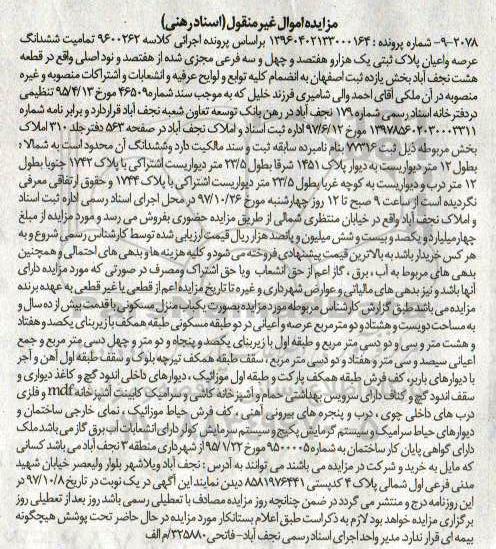 مزایده اموال غیر منقول (اسناد رهنی)
۹-۲۰۷۸- شماره پرونده : ۱۳۹۶۰۴۰۲۱۳۳۰۰۰۱۶۴ براساس پرونده اجرائی کلاسه ۹۶۰۰۲۶۲ تمامیت ششدانگ
عرصه واعیان پلاک ثبتی یک هزار و هفتصد و چهل و سه فرعی مجزی شده از هفتصد و نود اصلی واقع در قطعه
هشت نجف آباد بخش یازده ثبت اصفهان به انضمام کلیه توابع و لوایح عرفیه و انشعابات و اشتراکات منصوبه و غیره
منصوبه در آن ملکی آقای احمد والی شامیری فرزند خلیل که به موجب سند شماره ۴۶۵۰۹ مورخ ۹۵/۴/۱۳ تنظیمی
در دفترخانه اسناد رسمی شماره ۱۷۹ نجف آباد در رهن بانک توسعه تعاون شعبه نجف آباد قرار دارد و برابر نامه شماره
۱۳۹۷۸۵۶۰۲۰۳۰۰۰۳۳۱۱ مورخ ۹۷/۶/۱۲ اداره ثبت اسناد و املاک نجف آباد در صفحه ۵۶۳ دفتر جلد ۳۱۰ املاک
بخش مربوطه ذیل ثبت ۷۷۳۱۶ بنام نامبرده سابقه ثبت و سند مالکیت دارد و ششدانگ آن محدود است به شمالا :
بطول ۱۲ متر دیواریست به دیوار پلاک ۱۴۵۱ شرقا بطول ۲۳/۵ متر دیواریست اشتراکی با پلاک ۱۷۴۲ جنوبا بطول
۱۲ متر درب و دیواریست به کوچه غربا بطول ۲۳/۵ متر دیواریست اشتراکی با پلاک ۱۷۴۴ و حقوق ارتفاقی معرفی
نگردیده است از ساعت ۹ صبح تا ۱۲ روز چهارشنبه مورخ ۹۷/۱۰/۲۶ در محل اجرای اسناد رسمی اداره ثبت اسناد
و املاک نجف آباد واقع در خیابان منتظری شمالی از طریق مزایده حضوری بفروش می رسد و مورد مزایده از مبلغ
چهار میلیارد و یکصد و بیست و شش میلیون و پانصد هزار ریال قیمت ارزیابی شده توسط کارشناس رسمی شروع و به
هر کس خریدار باشد به بالاترین قیمت پیشنهادی فروخته می شود و کلیه هزینه ها و بدهی های احتمالی و همچنین
بدهی های مربوط به آب ، برق ، گاز اعم از حق انشعاب و یا حق اشتراک و مصرف در صورتی که مورد مزایده دارای
آنها باشد و نیز بدهی های مالیاتی و عوارض شهرداری و غیره تا تاریخ مزایده اعم از قطعی یا غیر قطعی به عهده برنده
مزایده می باشد طبق گزارش کارشناس مربوطه مورد مزایده بصورت یکباب منزل مسکونی با قدمت بیش از ده سال و
به مساحت دویست و هشتاد و دو متر مربع عرصه و اعیانی در دو طبقه مسکونی طبقه همکف با زیربنای یکصد و هفتاد
و هشت متر و سی و دو دسی متر مربع و طبقه اول با زیربنای یکصد و پنجاه و دو متر و چهل دسی متر مربع و جمع
اعیانی سیصد و سی متر و هفتاد و دو دسی متر مربع ، سقف طبقه همکف تیرچه بلوک و سقف طبقه اول آهن و آجر
با دیوارهای باربر، کف فرش طبقه همکف پارکت و طبقه اول موزائیک ، دیوارهای داخلی اندود گچ و کاغذ دیواری و
سقف اندود گچ و کناف دارای سرویس بهداشتی حمام و آشپزخانه کاشی و سرامیک کابینت آشپزخانه mdf و فلزی
درب های داخلی چوی ، درب و پنجره های بیرونی آهنی ، کف فرش حیاط موزائیک ، نمای خارجی ساختمان و
دیوارهای حیاط سرامیک و سیستم گرمایش پکیج و سیستم سرمایش کولر دارای انشعابات آب برق گاز می باشد ملک
دارای گواهی پایان کار ساختمان به شماره ۹۵۰۰۰۰۵ مورخ ۹۵/۱/۲۲ از شهرداری منطقه ۳ نجف آباد می باشد کسانی
که مایل به خرید و شرکت در مزایده می باشند می توانند به آدرس : نجف آباد ویلاشهر بلوار ولیعصر خیابان شهید
مدنی فرعی اول شمالی پلاک ۴ کدپستی ۸۵۸۱۹۷۶۴۴۱ دیدن نمایند این آگهی در یک نوبت در تاریخ ۹۷/۱۰/۸ در
این روزنامه درج و منتشر می گردد در ضمن چنانچه روز مزایده مصادف با تعطیلی رسمی باشد روز بعد از تعطیلی روز
برگزاری مزایده خواهد بود لازم به ذکر است طبق اعلام بستانکار مورد مزایده در حال حاضر تحت پوشش هیچگونه
بیمه ای قرار ندارد. مدیر واحد اجرای اسناد رسمی نجف آباد- فاتحی ۳۲۵۸۸۰/م الف